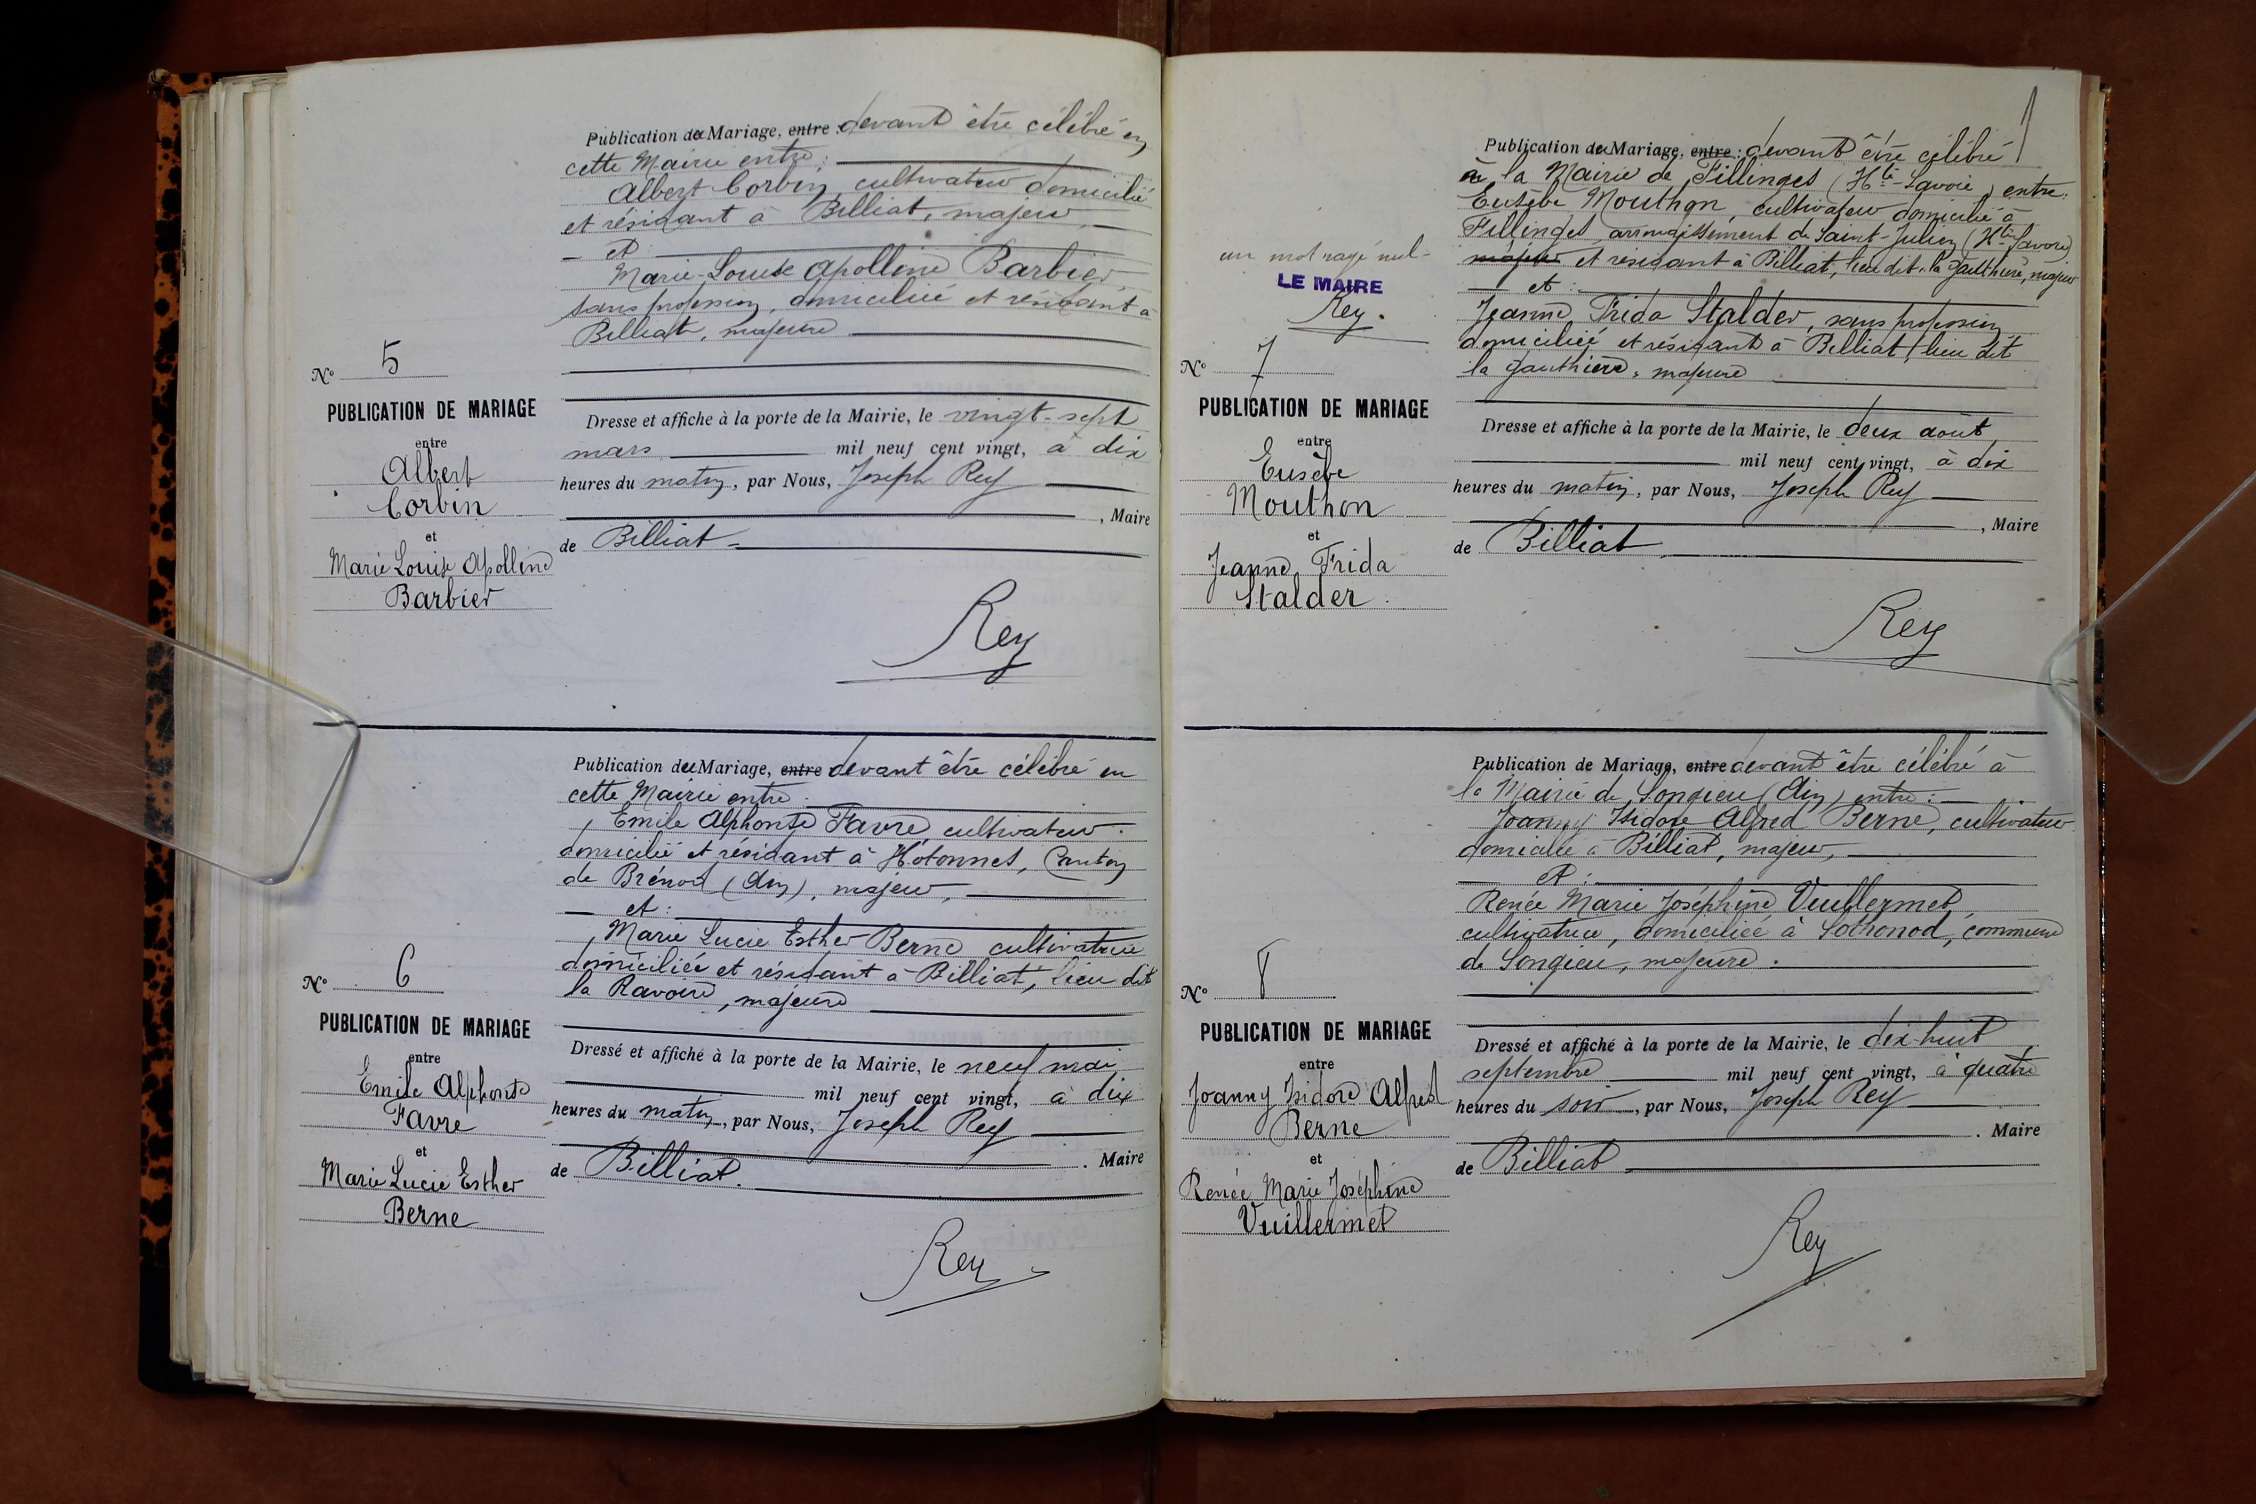 Publication de Mariage, entre : devant être célébré en
cette Mairie entre :
Albert Corbin, cultivateur domicilié
et résidant à Billiat, majeur,
et
Marie-Louise Apolline Barbier,
sans profession, domiciliée et résidant à
Billiat, majeure
N° 5
PUBLICATION DE MARIAGE
entre
Albert
Corbin
et
Marie Louise Apolline
Barbier
Dresse et affiche à la porte de la Mairie, le vingt-sept
mars mil neuf cent vingt, à dix
heures du matin, par Nous, Joseph Rey
, Maire
de Billiat
Rey
Publication de Mariage, entre devant être célébré en
cette Mairie entre
Emile Alphonse Favre, cultivateur
domicilié et résidant à Hotonnes, Canton
de Brénod (Ain), majeur,
et :
Marie Lucie Esther Berne cultivatrice
domiciliée et résidant à Billiat, lieu dit
la Ravoire, majeure
N° 6
PUBLICATION DE MARIAGE
entre
Emile Alphonse
Favre
et
Marie Lucie Esther
Berne
Dressé et affiché à la porte de la Mairie, le neuf mai
mil neuf cent vingt, à dix
heures du matin, par Nous, Joseph Rey
. Maire
de Billiat.
Rey
Publication de Mariage, entre : devant être célébré
à la Mairie de Fillinges (Hte-Savoie) entre :
Eusèbe Mouthon, cultivateur domicilié à
Fillinges, arrondissement de Saint-Julien (Hte Savoie)
majeur et résidant à Billiat, lieu dit la Gauthière, majeur
et :
Jeanne Frida Stalder, sans profession,
domiciliée et résidant à Billiat lieu dit
la Gauthière, majeure
un mot rayé nul
LE MAIRE
Rey.
N° 7
PUBLICATION DE MARIAGE
entre
Eusèbe
Mouthon
et
Jeanne Frida
Stalder
Dresse et affiche à la porte de la Mairie, le deux août
mil neuf cent vingt, à dix
heures du matin, par Nous, Joseph Rey
, Maire
de Billiat
Rey
Publication de Mariage, entre devant être célébré à
la Mairie de Songieu (Ain) entre :
Joanny Isidore Alfred Berne, cultivateur
domicilié à Billiat, majeur,
et :
Renée Marie Joséphine Vuillermet,
cultivatrice, domiciliée à Sothonod, commune
de Songieu, majeure.
N° 8
PUBLICATION DE MARIAGE
entre
Joanny Isidore Alfred
Berne
et
Renée Marie Joséphine
Vuillermet
Dressé et affiché à la porte de la Mairie, le dix-huit
septembre mil neuf cent vingt, à quatre
heures du soir, par Nous, Joseph Rey
. Maire
de Billiat
Rey